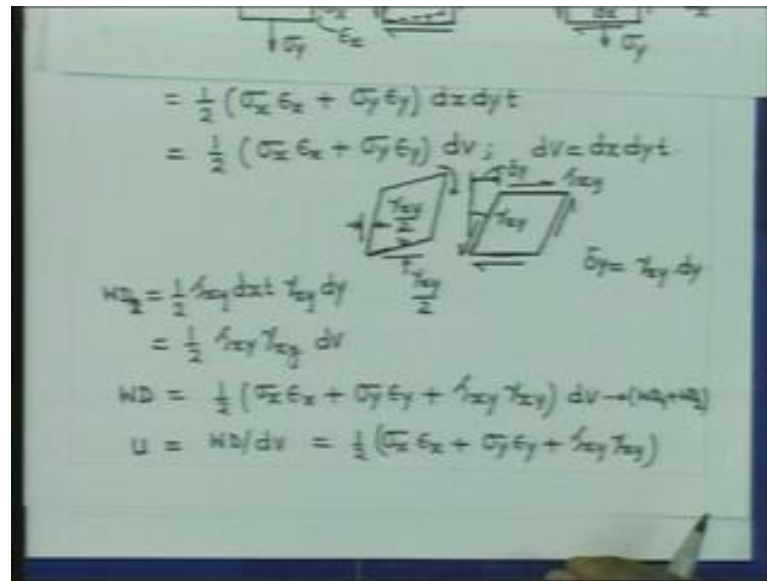 σy εx dx σy
= 1/2 (σx εx + σy εy) dxdyt
= 1/2 (σx εx + σy εy) dv; dv = dxdyt
γxy/2 δy γxy τxy
γxy/2 δy = γxy dy
WD2 = 1/2 τxy dxt γxy dy
= 1/2 τxy γxy dv
WD = 1/2 (σx εx + σy εy + τxy γxy) dv → (WD1+WD2)
U = WD/dv = 1/2 (σx εx + σy εy + τxy γxy)